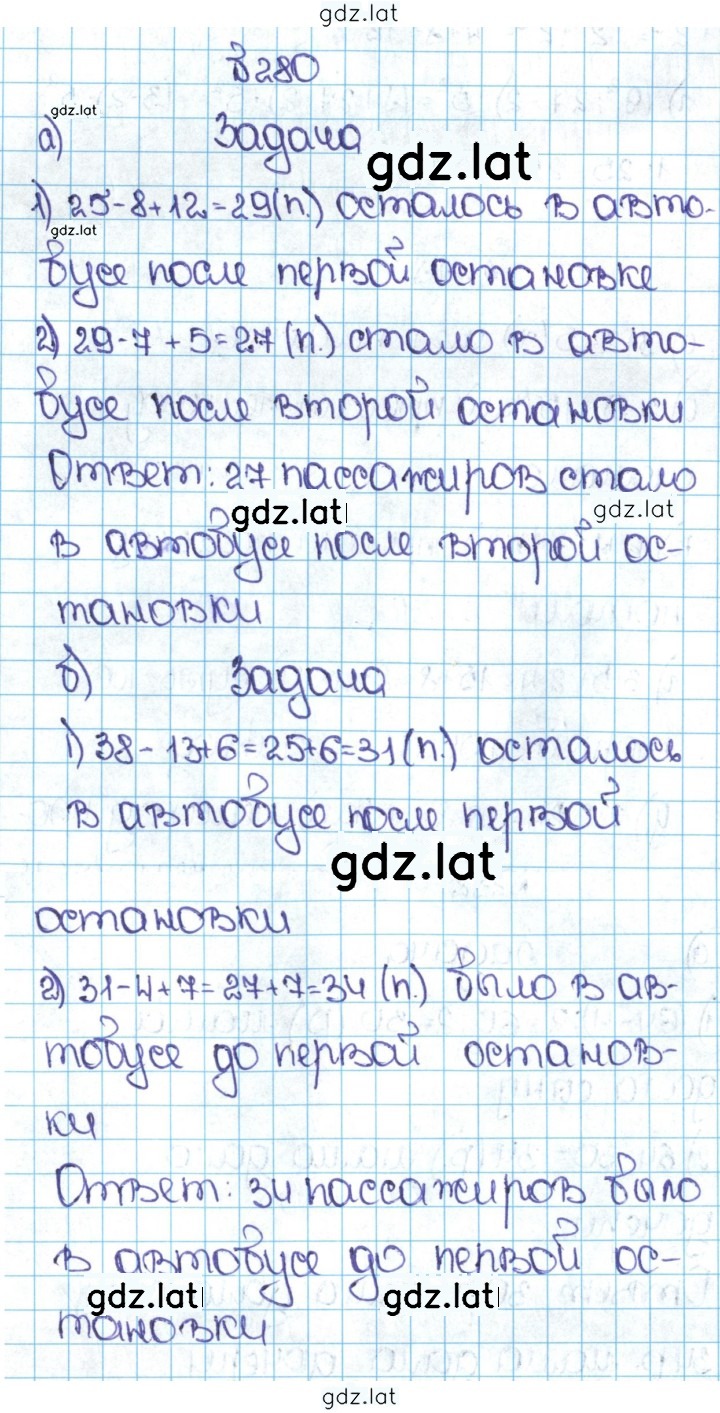 gdz.lat
В 280
gdz.lat
а) Задача
gdz.lat
1) 25-8+12=29(п.) осталось в авто-
gdz.lat
бусе после первой остановке
2) 29-7+5=27(п.) стало в авто-
бусе после второй остановки
Ответ: 27 пассажиров стало
gdz.lat gdz.lat
в автобусе после второй ос-
тановки
б) Задача
1) 38-13+6=25+6=31(п.) осталось
в автобусе после первой
gdz.lat
остановки
2) 31-4+7=27+7=34 (п.) было в ав-
тобусе до первой останов-
ки
Ответ: 34 пассажиров было
в автобусе до первой ос-
gdz.lat gdz.lat
тановки
gdz.lat